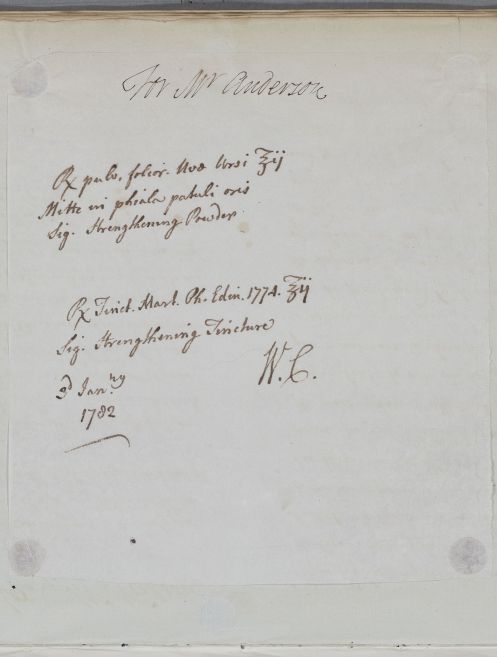 For Mr Anderson
℞ pulv. folior. Uvæ Ursi ℥ij
Mitte in phiala patuli oris
Sig. Strengthening Powder.
℞ Tinct. Mart. Ph. Edin. 1774. ℥ij
Sig. Strengthening Tincture
W. C.
3d Janry
1782